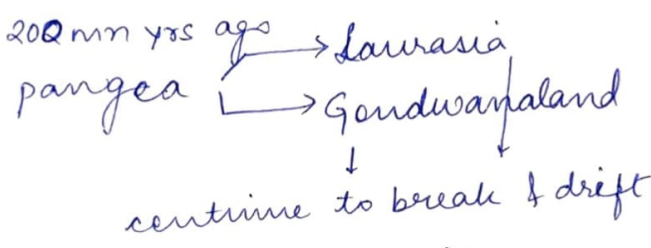 200 mn yrs ago
→ Laurasia
pangea
→ Gondwanaland
continue to break & drift